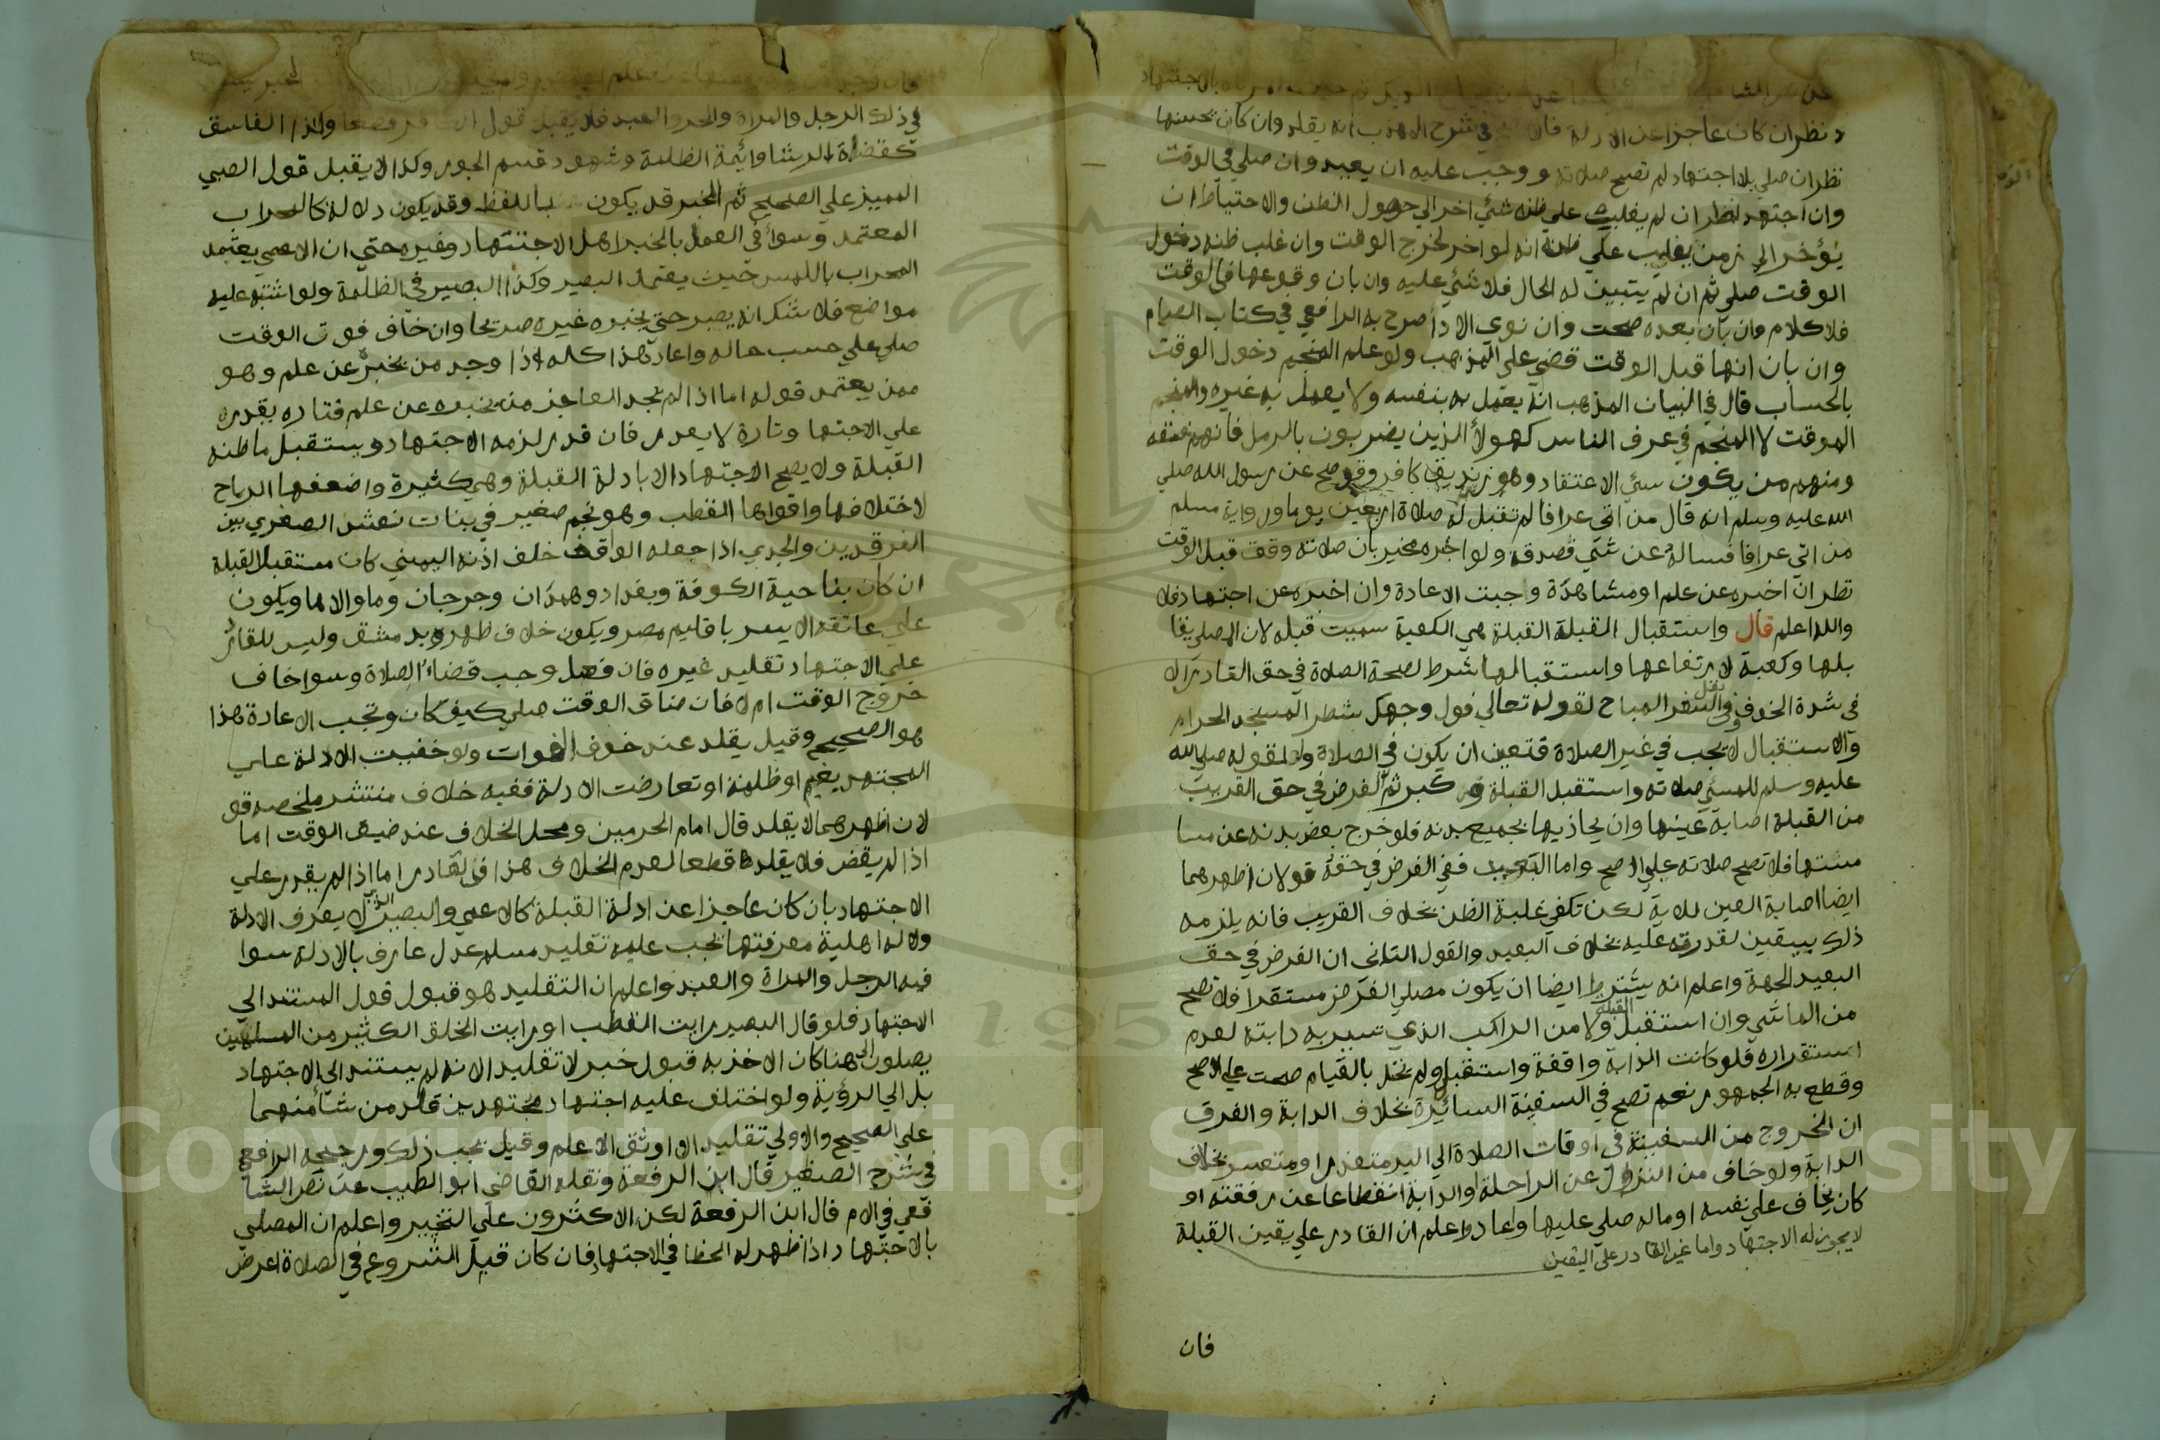 عن علم او مشاهدة
نظر ان كان عاجزا عن الادلة فان في شرح المهذب انه يقلد وان كان يحسنها
نظر ان صلي بلا اجتهاد لم تصح صلاته ووجب عليه ان يعيد وان صلي في الوقت
وان اجتهد نظر ان لم يغلب علي ظنه شئي اخر الي حصول الظن والاحتياط ان
يؤخر الي زمن يغلب علي ظنه انه لو اخر لخرج الوقت وان غلب ظنه دخول
الوقت صلي ثم ان لم يتبين له الحال فلا شئي عليه وان بان وقوعها في الوقت
فلا كلام وان بان بعده صحت وان نوي الادا صرح به الرافعي في كتاب الصيام
وان بان انها قبل الوقت قضي علي المذهب ولو علم المنجم دخول الوقت
بالحساب قال في البيان المذهب انه يعمل به بنفسه ولا يعمل به غيره والمنجم
الموقت لا المنجم في عرف الناس كهولا الذين يضربون بالرمل فانهم فسقه
ومنهم من يكون سئي الاعتقاد وهو زنديق كافر وقد صح عن رسول الله صلي
الله عليه وسلم انه قال من اتي عرافا لم تقبل له صلاة اربعين يوما ورواية مسلم
من اتي عرافا فساله عن شئي فصدقه ولو اخبره مخبر بان صلاته وقعت قبل الوقت
نظر ان اخبره عن علم او مشاهدة وجبت الاعادة وان اخبره عن اجتهاد فلا
والله اعلم قال واستقبال القبلة القبلة هي الكعبة سميت قبله لان المصلي يقا
بلها وكعبة لارتفاعها واستقبالها شرط لصحة الصلاة في حق القادر الا
في شدة الخوف وفي نفل السفر المباح لقوله تعالي فول وجهك شطر المسجد الحرام
والاستقبال لا يجب في غير الصلاة فتعين ان يكون في الصلاة ولقوله صلي الله
عليه وسلم للمسئي صلاته واستقبل القبلة وكبر ثم الفرض في حق القريب
من القبلة اصابة عينها وان يحاذيها بجميع بدنه فلو خرج بعض بدنه عن مسا
متتها فلا تصح صلاته علي الاصح واما البعيد ففي الفرض في حقه قولان اظهرهما
ايضا اصابة العين للاية لكن تكفي غلبة الظن بخلاف القريب فانه يلزمه
ذلك بيقين لقدرته عليه بخلاف البعيد والقول الثاني ان الفرض في حق
البعيد الجهة واعلم انه يشترط ايضا ان يكون مصلي الفرض مستقرا فلا تصح
من الماشي وان استقبل القبلة ولا من الراكب الذي تسير به دابته لعدم
استقراره فلو كانت الدابة واقفة واستقبل ولم يخل بالقيام صحت علي الاصح
وقطع به الجمهور نعم تصح في السفينة السائرة بخلاف الدابة والفرق
ان الخروج من السفينة في اوقات الصلاة الي البر متعذر او متعسر بخلاف
الدابة ولو خاف من النزول عن الراحلة او الدابة انقطاعا عن رفقته او
كان يخاف علي نفسه او ماله صلي عليها واعاد واعلم ان القادر علي يقين القبلة
لا يجوز له الاجتهاد واما غير القادر علي اليقين
فان
في ذلك الرجل والمراة والحر والعبد فلا يقبل قول الكافر قطعا وكذا الفاسق
كقضاة الرشا وائمة الظلمة وشهود قسم الجور وكذا لا يقبل قول الصبي
المميز علي الصحيح ثم الخبر قد يكون باللفظ وقد يكون دلالة كالمحراب
المعتمد وسوا في العمل بالخبر اهل الاجتهاد وغيره حتي ان الاعمي يعتمد
المحراب باللمس حيث يعتمد البصير وكذا البصير في الظلمة ولو اشتبه عليه
مواضع فلا شك انه يصبر حتي يخبره غيره صريحا وان خاف فوت الوقت
صلي علي حسب حاله واعاد هذا كله اذا وجد من يخبره عن علم وهو
ممن يعتمد قوله اما اذا لم يجد العاجز من يخبره عن علم فتاره يقدر
علي الاجتها وتارة لا يقدر فان قدر لزمه الاجتهاد ويستقبل ما ظنه
القبلة ولا يصح الاجتهاد الا بادلة القبلة وهي كثيرة واضعفها الرياح
لاختلافها واقواها القطب وهو نجم صغير في بنات نعش الصغري بين
الفرقدين والجدي اذا جعله الواقف خلف اذنه اليمني كان مستقبل القبلة
ان كان بناحية الكوفة وبغداد وهمدان وجرجان وما والاها ويكون
علي عاتقه الايسر باقليم مصر ويكون خلاف ظهره بدمشق وليس للقادر
علي الاجتهاد تقليد غيره فان فعل وجب قضاء الصلاة وسوا خاف
خروج الوقت ام لا فان ضاق الوقت صلي كيف كان وتجب الاعادة هذا
هو الصحيح وقيل يقلد عند خوف الفوات ولو خفيت الادلة علي
المجتهد بغيم او ظلمة او تعارضت الادلة ففيه خلاف منتشر ملخصه قو
لان اظهرهما لا يقلد قال امام الحرمين ومحل الخلاف عند ضيق الوقت اما
اذا لم يضق فلا يقلد قطعا لعدم الخلاف هذا في القادر اما اذا لم يقدر علي
الاجتهاد بان كان عاجزا عن ادلة القبلة كالاعمي والبصير الذي لا يعرف الادلة
ولا له اهلية معرفتها يجب عليه تقليد مسلم عدل عارف بالادلة سوا
فيه الرجل والمراة والعبد واعلم ان التقليد هو قبول قول المستند الي
الاجتهاد فلو قال البصير رايت القطب او رايت الخلق الكثير من المسلمين
يصلون الي هنا كان الاخذ به قبول خبر لا تقليد لانه لم يستند الي الاجتهاد
بل الي الرؤية ولو اختلف عليه اجتهاد مجتهدين قلد من شاء منهما
علي الصحيح والاولي تقليد الاوثق الاعلم وقيل يجب ذلك ورجحه الرافعي
في شرح الصغير قال ابن الرفعة ونقله القاضي ابو الطيب عن نص الشا
فعي في الام قال ابن الرفعة لكن الاكثرون علي التخيير واعلم ان المصلي
بالاجتهاد اذا ظهر له الخطا في الاجتهاد فان كان قبل الشروع في الصلاة اعرض
Copyright © King Saud University